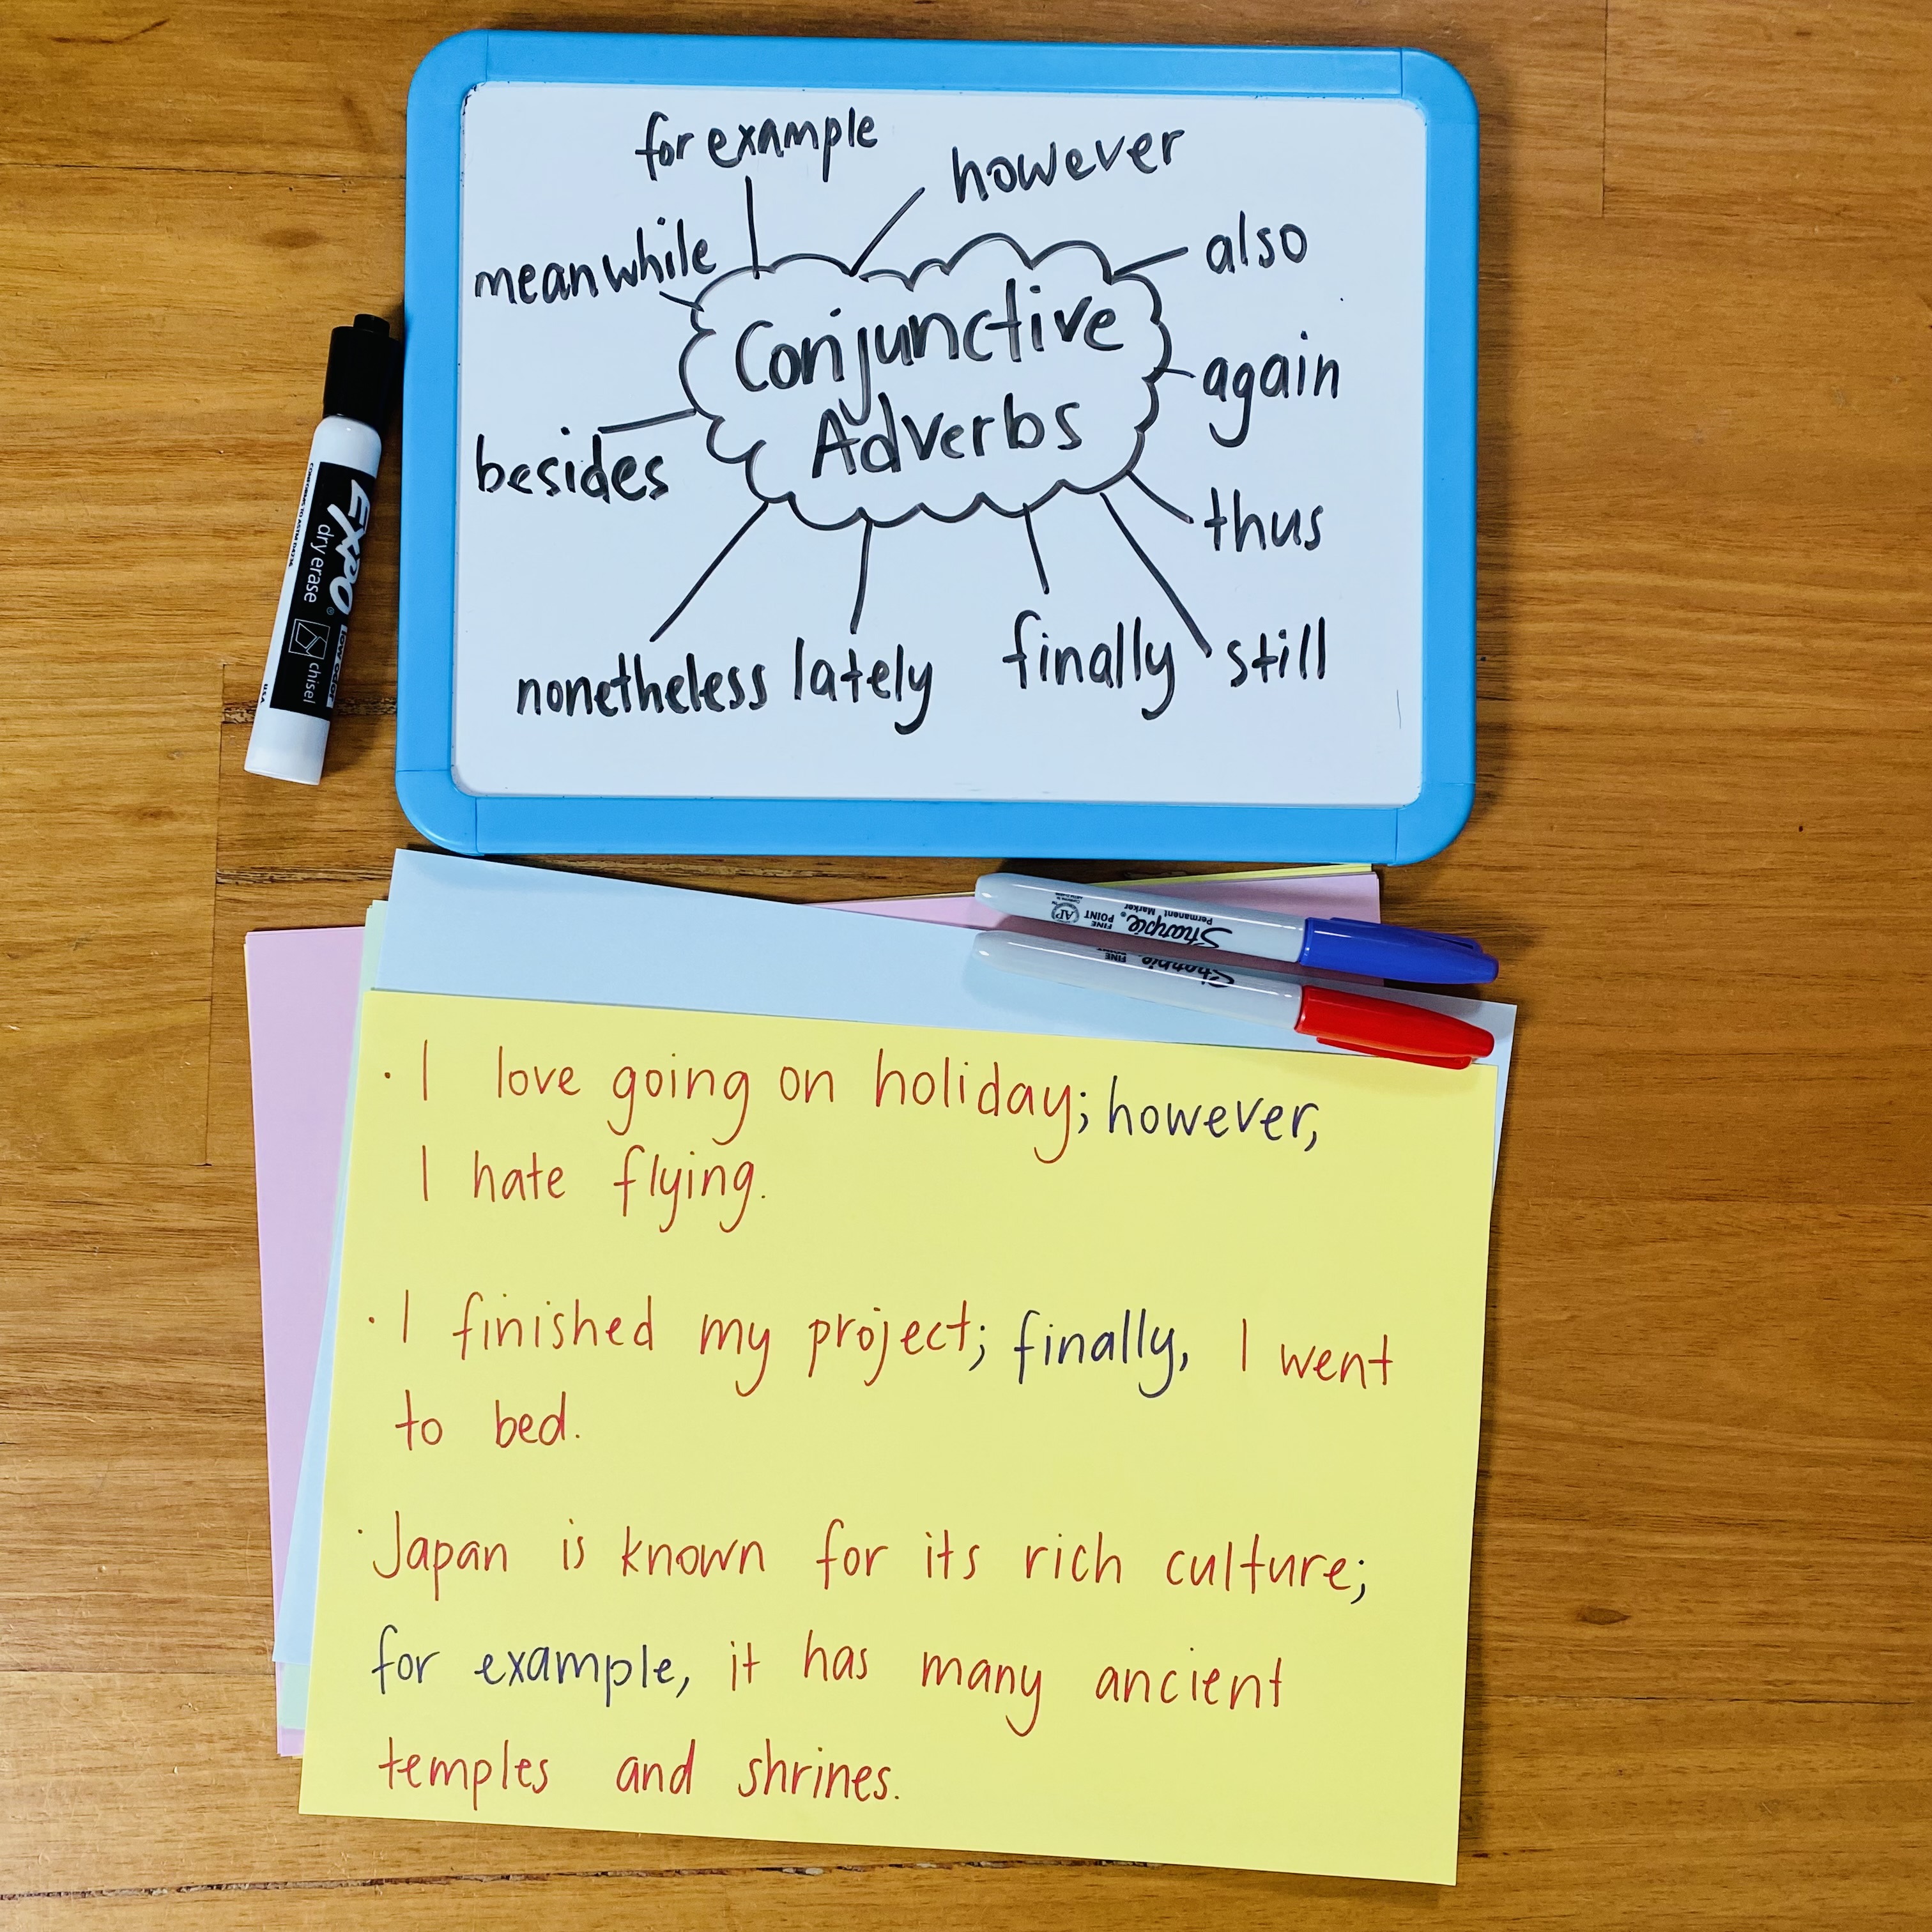 for example
however
meanwhile
also
Conjunctive
again
Adverbs
besides
thus
nonetheless
lately
finally
still
EXPO
dry erase
low odor
chisel
U.S.A.
CONFORMS TO ASTM D4236
Sharpie
FINE
POINT
Permanent
Marker
AP
Sharpie
FINE
• I love going on holiday; however,
I hate flying.
• I finished my project; finally, I went
to bed.
• Japan is known for its rich culture;
for example, it has many ancient
temples and shrines.